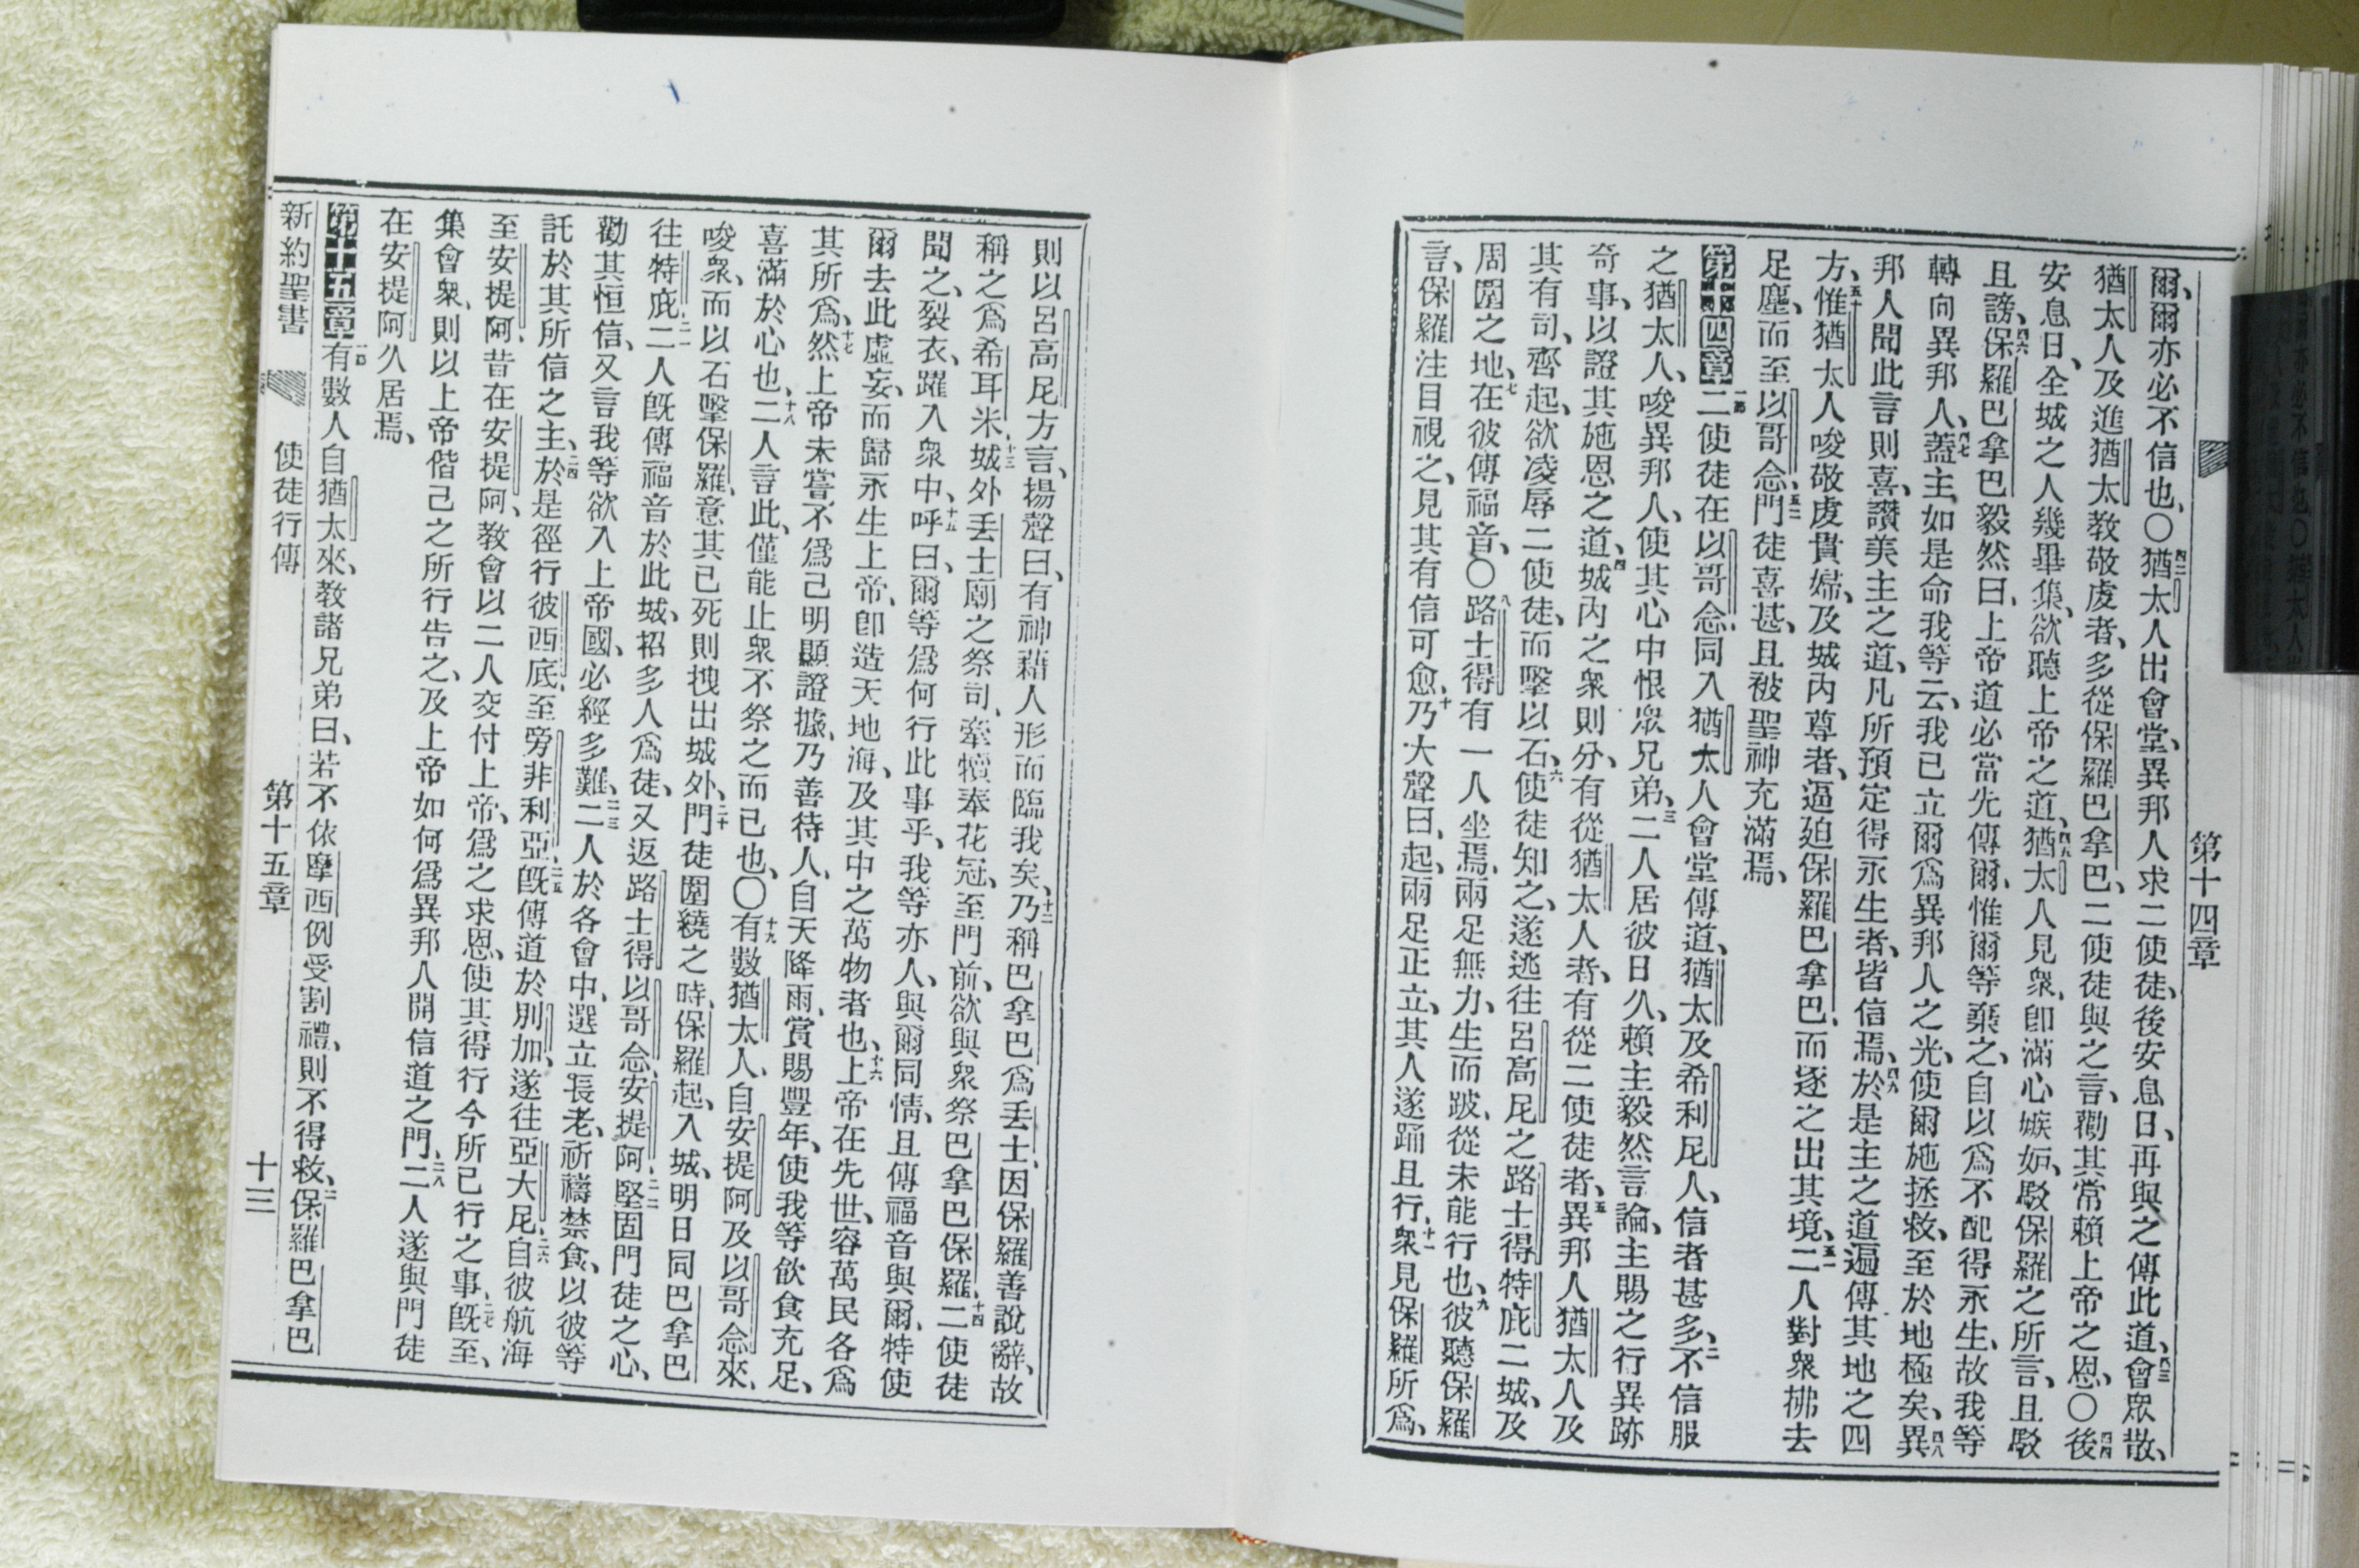 第十四章
爾、爾亦必不信也、〇四二猶太人出會堂、異邦人求二使徒、後安息日、再與之傳此道、四三會眾散、
猶太人及進猶太教敬虔者、多從保羅巴拿巴、二使徒與之言、勸其常賴上帝之恩、〇四四後
安息日、全城之人幾畢集、欲聽上帝之道、四五猶太人見衆、卽滿心嫉妬、駁保羅之所言、且駁
且謗、四六保羅巴拿巴毅然曰、上帝道必當先傳爾、惟爾等棄之、自以爲不配得永生、故我等
轉向異邦人、四七蓋主如是命我等云、我已立爾爲異邦人之光、使爾施拯救、至於地極矣、四八異
邦人聞此言則喜、讚美主之道、凡所預定得永生者、皆信焉、四九於是主之道遍傳其地之四
方、五十惟猶太人唆敬虔貴婦、及城內尊者、逼廹保羅巴拿巴、而逐之出其境、五一二人對衆拂去
足塵、而至以哥念、五二門徒喜甚、且被聖神充滿焉、
第十四章一節二使徒在以哥念、同入猶太人會堂傳道、猶太及希利尼人、信者甚多、二不信服
之猶太人、唆異邦人、使其心中恨眾兄弟、三二人居彼日久、賴主毅然言論、主賜之行異跡
奇事、以證其施恩之道、四城內之衆則分、有從猶太人者、有從二使徒者、五異邦人猶太人及
其有司、齊起、欲凌辱二使徒、而擊以石、六使徒知之、遂逃往呂高尼之路士得特庇二城、及
周圍之地、七在彼傳福音、〇八路士得有一人坐焉、兩足無力、生而跛、從未能行也、九彼聽保羅
言、保羅注目視之、見其有信可愈、十乃大聲曰、起、兩足正立、其人遂踊且行、十一衆見保羅所爲、
則以呂高尼方言、揚聲曰、有神藉人形而臨我矣、十二乃稱巴拿巴爲丟士、因保羅善說辭、故
稱之爲希耳米、十三城外丟士廟之祭司、牽犢奉花冠、至門前、欲與衆祭巴拿巴保羅、十四二使徒
聞之、裂衣、躍入衆中、十五呼曰、爾等爲何行此事乎、我等亦人、與爾同情、且傳福音與爾、特使
爾去此虛妄、而歸永生上帝、卽造天地海、及其中之萬物者也、十六上帝在先世、容萬民各爲
其所爲、十七然上帝未嘗不爲己明顯證據、乃善待人、自天降雨、賞賜豐年、使我等飲食充足、
喜滿於心也、十八二人言此、僅能止衆不祭之而已也、〇十九有數猶太人、自安提阿及以哥念來、
唆衆、而以石擊保羅、意其已死、則拽出城外、二十門徒圍繞之時、保羅起、入城、明日同巴拿巴
往特庇、二一二人旣傳福音於此城、招多人爲徒、又返路士得以哥念安提阿、二二堅固門徒之心、
勸其恒信、又言我等欲入上帝國、必經多難、二三二人於各會中、選立長老、祈禱禁食、以彼等
託於其所信之主、二四於是徑行彼西底、至旁非利亞、二五旣傳道於別加、遂往亞大尼、二六自彼航海
至安提阿、昔在安提阿、教會以二人交付上帝、爲之求恩、使其得行今所已行之事、二七旣至、
集會衆、則以上帝偕己之所行告之、及上帝如何爲異邦人開信道之門、二八二人遂與門徒
在安提阿久居焉、
第十五章一節有數人自猶太來、教諸兄弟曰、若不依摩西例受割禮、則不得救、二保羅巴拿巴
新約聖書 使徒行傳 第十五章 十三